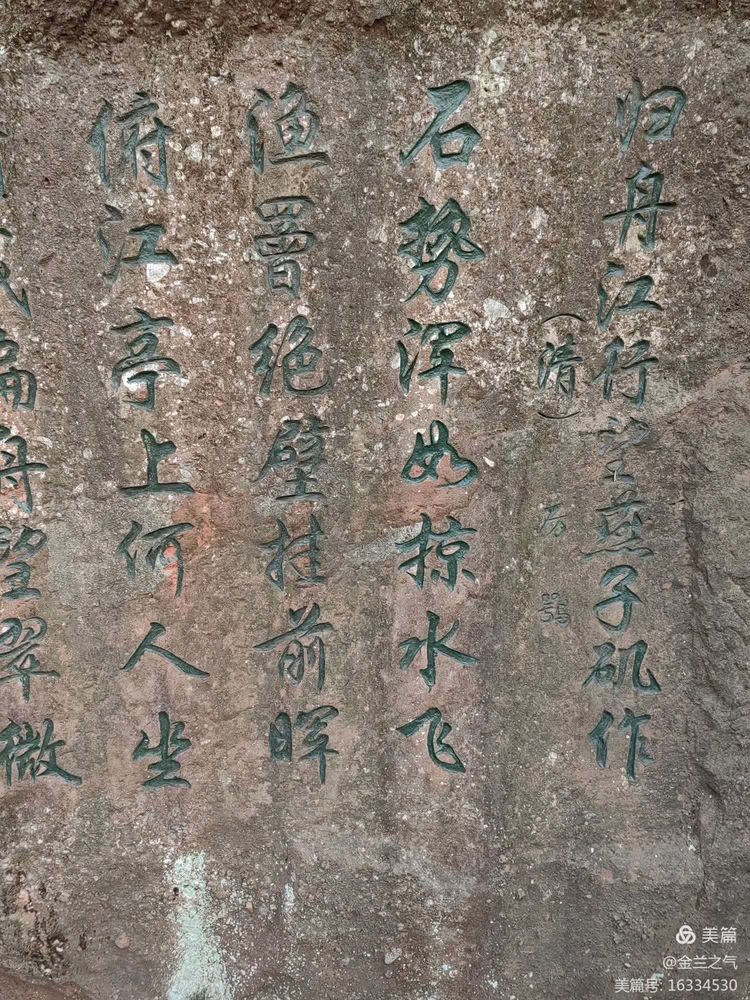 归舟江行望燕子矶作
（清）厉鹗
石势浑如掠水飞
渔罾绝壁挂前晖
俯江亭上何人坐
我扁舟望翠微
美篇
@金兰之气
美篇号: 16334530